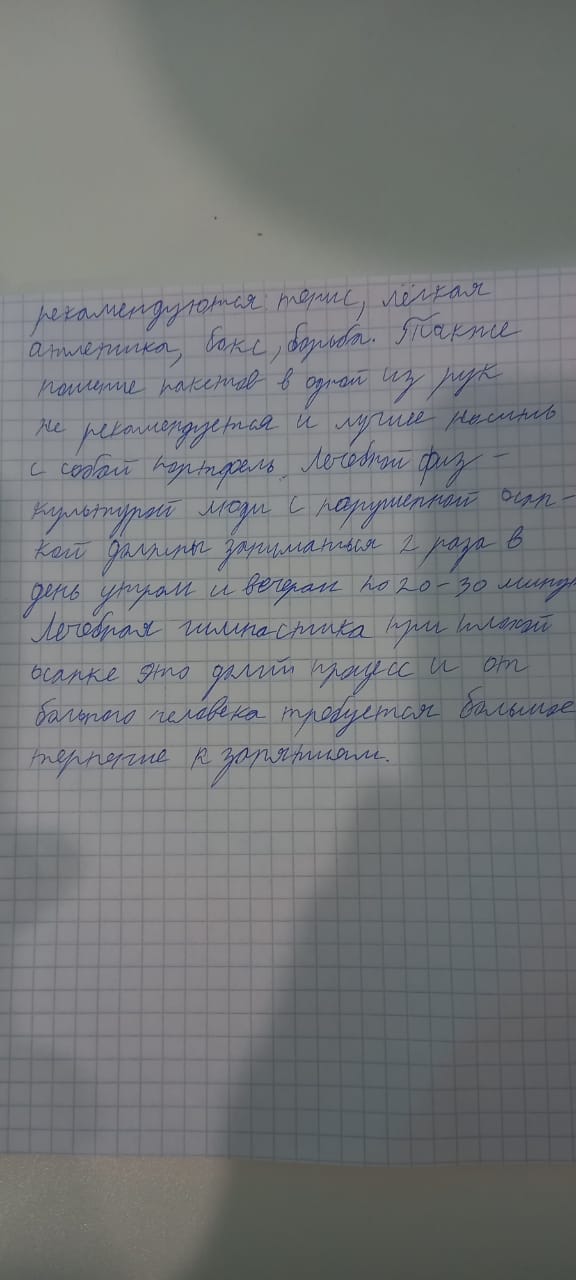 рекомендуются тенис, лёгкая
атлетика, бокс, борьба. Также
ношение пакетов в одной из рук
не рекомендуется и лучше носить
с собой портфель. Лечебной физ-
культурой люди с нарушенной осан-
кой должны заниматься 2 раза в
день утром и вечером по 20-30 минут
Лечебная гимнастика при плохой
осанке это долгий процесс и от
больного человека требуется большое
терпение к занятиям.